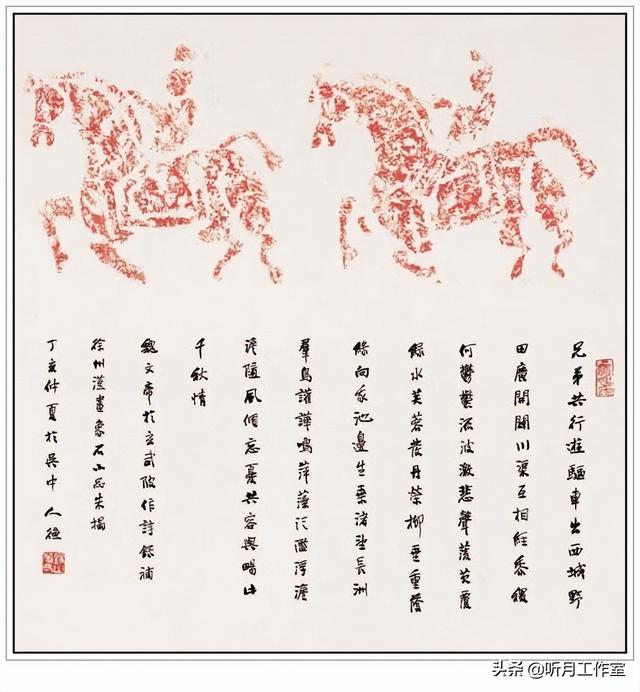 兄弟共行遊驅車出西城野
田廣開闢川渠互相經黍稷
何鬱鬱流波激悲聲菱芡覆
綠水芙蓉發丹榮柳垂重蔭
綠向我池邊生乗諸望長洲
羣鳥讙譁鳴萍藻泛濫浮澹
澹隨風傾忘憂共容與暢此
千秋情
魏文帝於玄武陂作詩錄補
徐州漢畫象石小品朱搨
丁亥仲夏於吳中人
头条 @听月工作室